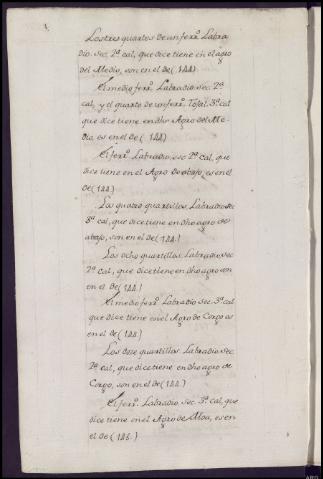 Los tres quartos de un ferr.º Labra
dio, sec. 2ª cal, que dice tiene en el agro
del Medio, son en el de (144)
El medio ferr.º Labradio sec. 2ª
cal, y el quarto de un ferr.º 3ª cal
que dice tiene en dho Agro del Me=
dio es en el de (144)
El ferr.º Labradio, sec 2ª cal, que
dice tiene en el Agro de abajo, es en el
de (144)
Los quatro quartillos Labradio sec
3ª cal, que dice tiene en dho agro de
abajo, son en el de (144)
Los ocho quartillos Labradio sec
2ª cal, que dice tiene en dho agro son
en el de (144)
El medio ferr.º Labradio sec. 3ª cal
que dice tiene en el Agro de Corgo es
en el de (144)
Los doce quartillos Labradio sec.
2ª cal, que dice tiene en dho agro de
Corgo, son en el de (144)
El ferr.º Labradio sec. 3ª cal, que
dice tiene en el Agro de es en
el de (144)